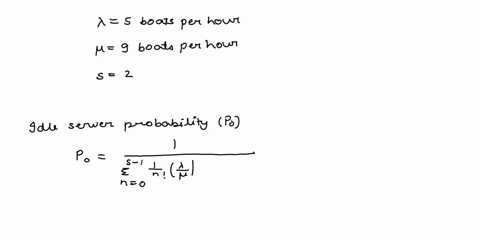 λ = 5 boats per hour
μ = 9 boats per hour
s = 2
Idle server probability (P₀)
P₀ = 1 / Σ_{n=0}^{s-1} 1/n! (λ/μ|